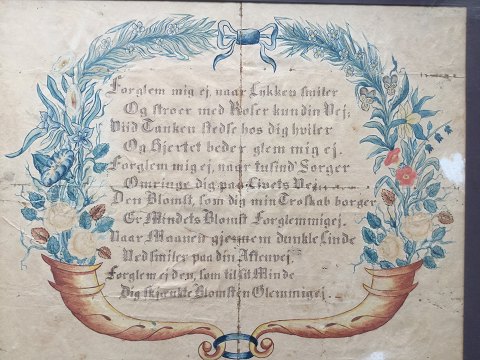 Forglem mig ej, naar Lykken smiler
Og strøer med Roser kun din Vej;
Viid Tanken stedse hos dig hviler
Og Hjertet beder glem mig ej.
Forglem mig ej, naar tusind' Sorger
Omringe dig paa Livets Vej.
Den Blomst, som dig min Troskab borger
Er Mindets Blomst Forglemmigej.
Naar Maanen gjennem dunkle Linde
Nedsmiler paa din Aftenvej,
Forglem ej den, som til sit Minde
Dig skjænkte Blomsten Glemmigej.